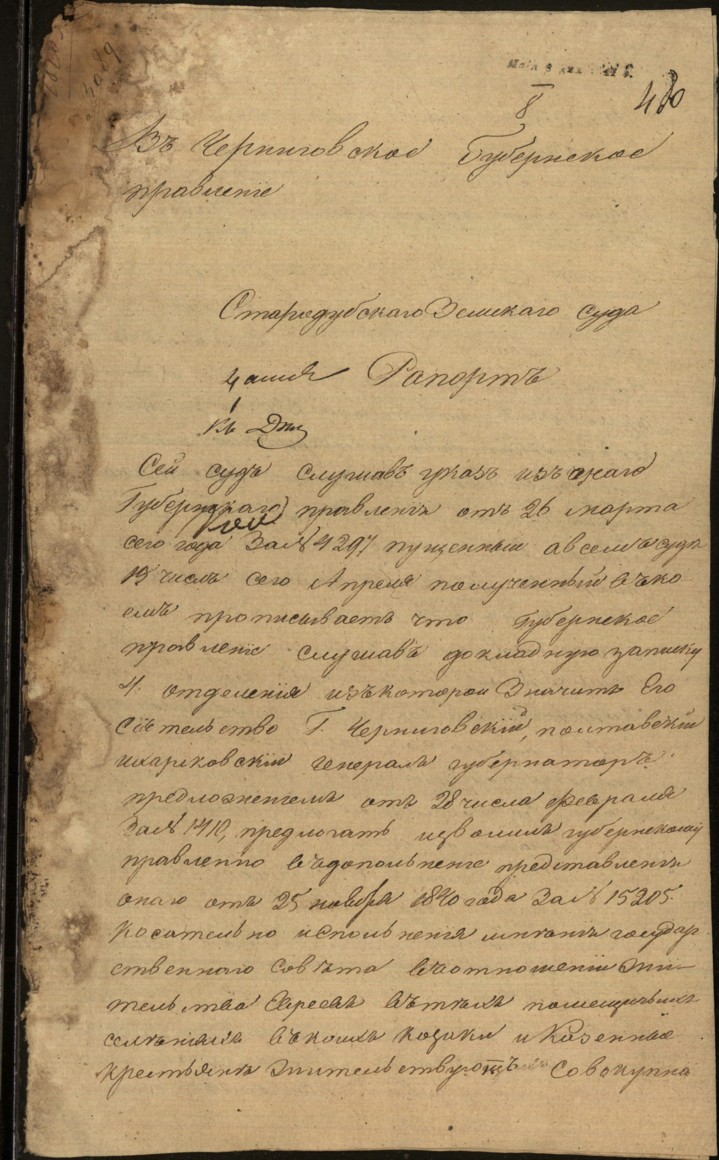 480
8
Въ Черниговское Губернское
правленіе
Стародубскаго Земскаго суда
Рапортъ
къ
Сей судъ слушавъ указъ изъ онаго
Губернскаго правленія отъ 26 марта
сего года За № 4297 пущенный а в семъ суде
19 числъ сего Апреля полученный въ ко
емъ прописываетъ что Губернское
правленіе слушавъ докладную записку
4 отделенія изъ которой Значитъ Его
Сіятельство Г. Черниговскій, полтавскій
ихарковскій генералъ губернаторъ
предложеніемъ отъ 28 числа февраля
За № 1410, предлогать изволилъ губернскому
правленію въ дополненіе представленія
онаго отъ 25 ноября 1840 года За № 15205
косательно исполненія мненія государ
ственнаго Совѣта въ отношеніи жи
тельства Евреевъ въ тѣхъ помещичьихъ
селеніяхъ въ коихъ козаки и Казенные
крестьяне жительствуютъ Совокупна